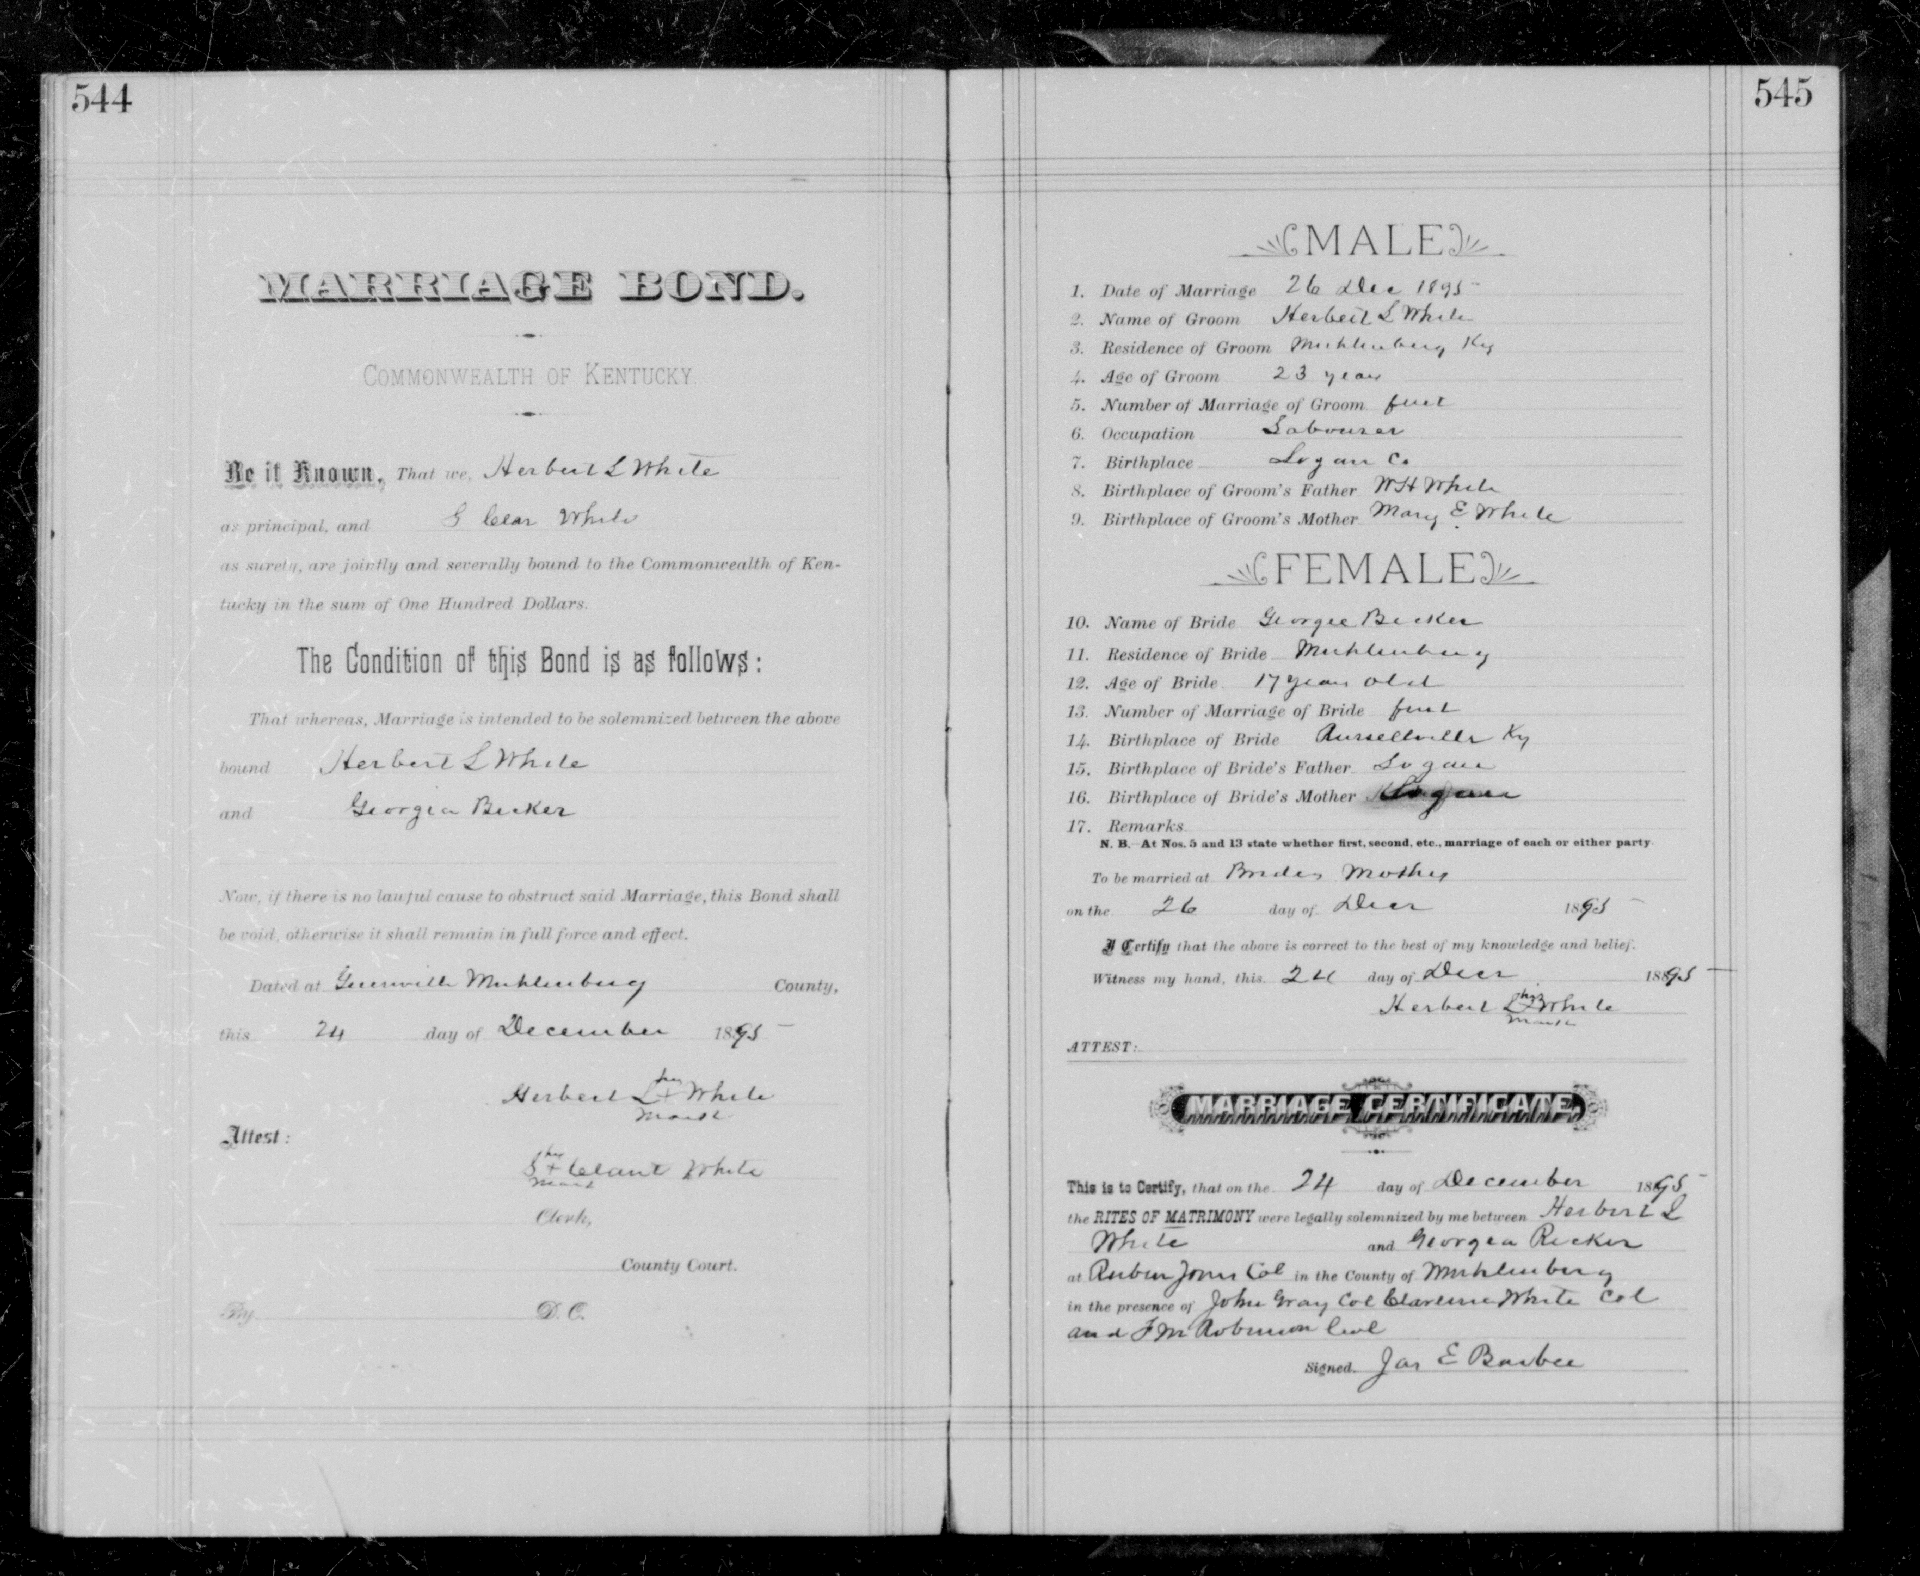 544
MARRIAGE BOND.
COMMONWEALTH OF KENTUCKY.
Be it Known, That we, Herbert L White
as principal, and S Clar White
as surety, are jointly and severally bound to the Commonwealth of Ken-
tucky in the sum of One Hundred Dollars.
The Condition of this Bond is as follows:
That whereas, Marriage is intended to be solemnized between the above
bound Herbert L White
and Georgia Becker
Now, if there is no lawful cause to obstruct said Marriage, this Bond shall
be void, otherwise it shall remain in full force and effect.
Dated at Greenville Muhlenburg County,
this 24 day of December 1895
Herbert L his x mark White
Attest:
S his x mark White
Clerk,
County Court.
By D. C.
545
MALE
1. Date of Marriage 26 Dec 1895
2. Name of Groom Herbert L White
3. Residence of Groom Muhlenburg Ky
4. Age of Groom 23 years
5. Number of Marriage of Groom first
6. Occupation Labourer
7. Birthplace Logan Co
8. Birthplace of Groom's Father WH White
9. Birthplace of Groom's Mother Mary E White
FEMALE
10. Name of Bride Georgie Becker
11. Residence of Bride Muhlenburg
12. Age of Bride 17 years old
13. Number of Marriage of Bride first
14. Birthplace of Bride Russellville Ky
15. Birthplace of Bride's Father Logan
16. Birthplace of Bride's Mother Logan
17. Remarks
N. B.—At Nos. 5 and 13 state whether first, second, etc., marriage of each or either party.
To be married at Brides Mothers
on the 26 day of Decr 1895
I Certify that the above is correct to the best of my knowledge and belief.
Witness my hand, this 24 day of Decr 1895
Herbert L his x mark White
ATTEST:
MARRIAGE CERTIFICATE.
This is to Certify, that on the 24 day of December 1895
the RITES OF MATRIMONY were legally solemnized by me between Herbert L
White and Georgia Recker
at Ruben Jones Col in the County of Muhlenburg
in the presence of John Gray Col Clarence White Col
and F M Robinson Col
Signed. Jas E Barbee